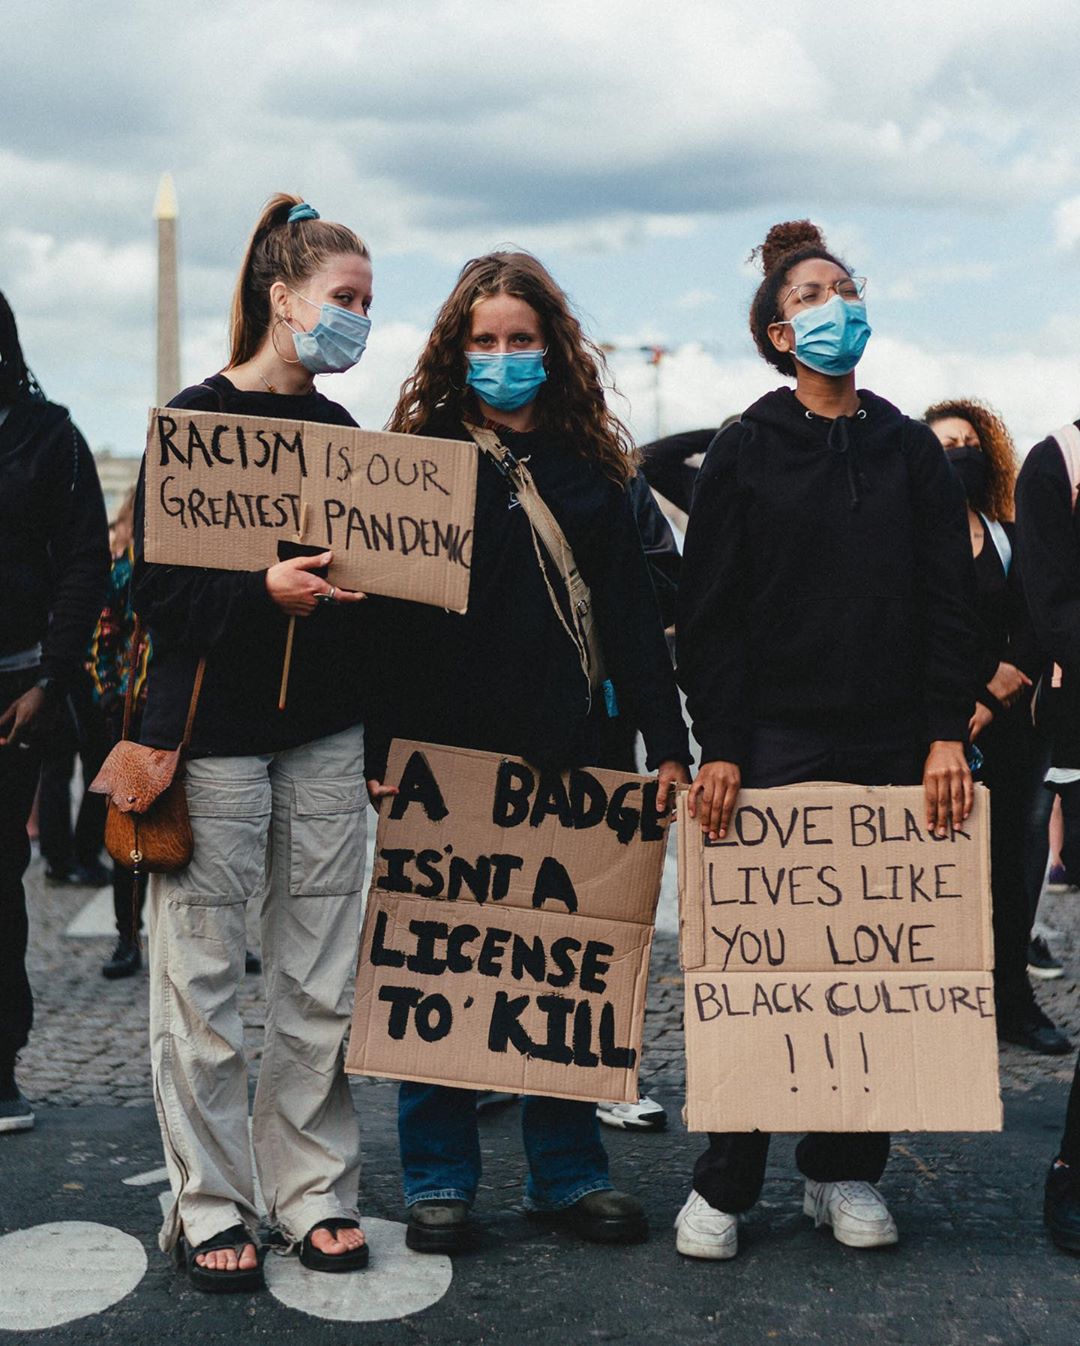 RACISM IS OUR
GREATEST PANDEMIC
A BADGE
IS'NT A
LICENSE
TO' KILL
LOVE BLACK
LIVES LIKE
YOU LOVE
BLACK CULTURE
!!!